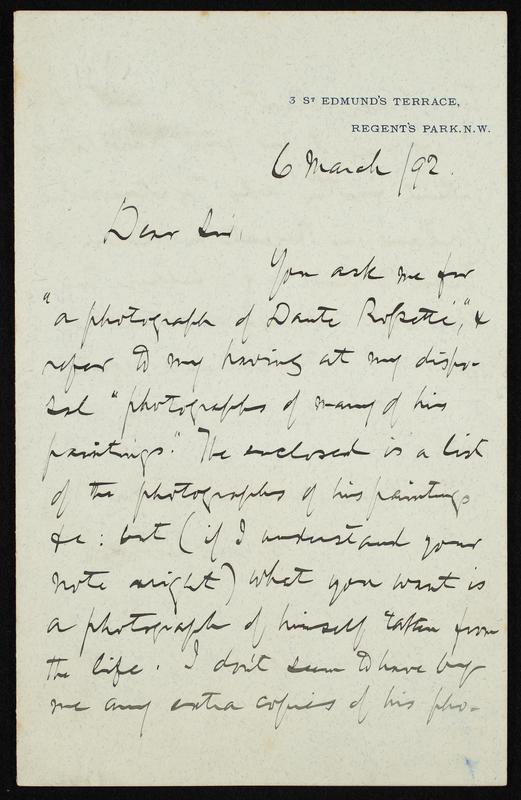 3 ST EDMUND'S TERRACE,
REGENT'S PARK. N.W.
6 March /92.
Dear Sir,
You ask me for
"a photograph of Dante Rossetti", &
refer to my having at my dispo-
sal "photographs of many of his
paintings." The enclosed is a list
of the photographs of his paintings
&c: but (if I understand your
note aright) what you want is
a photograph of himself taken from
the life. I don't seem to have by
me any extra copies of his pho-